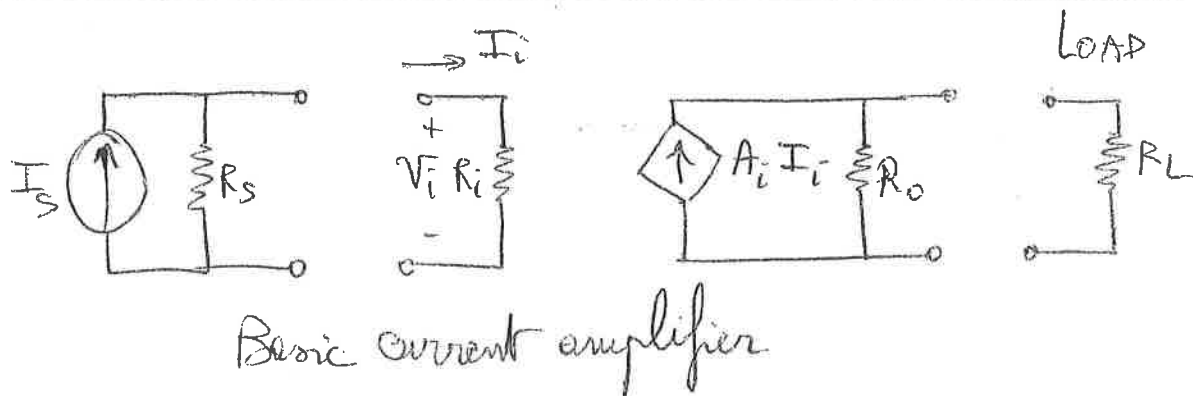 I_i
LOAD
I_S
R_S
+
V_i
R_i
-
A_i I_i
R_o
R_L
Basic current amplifier